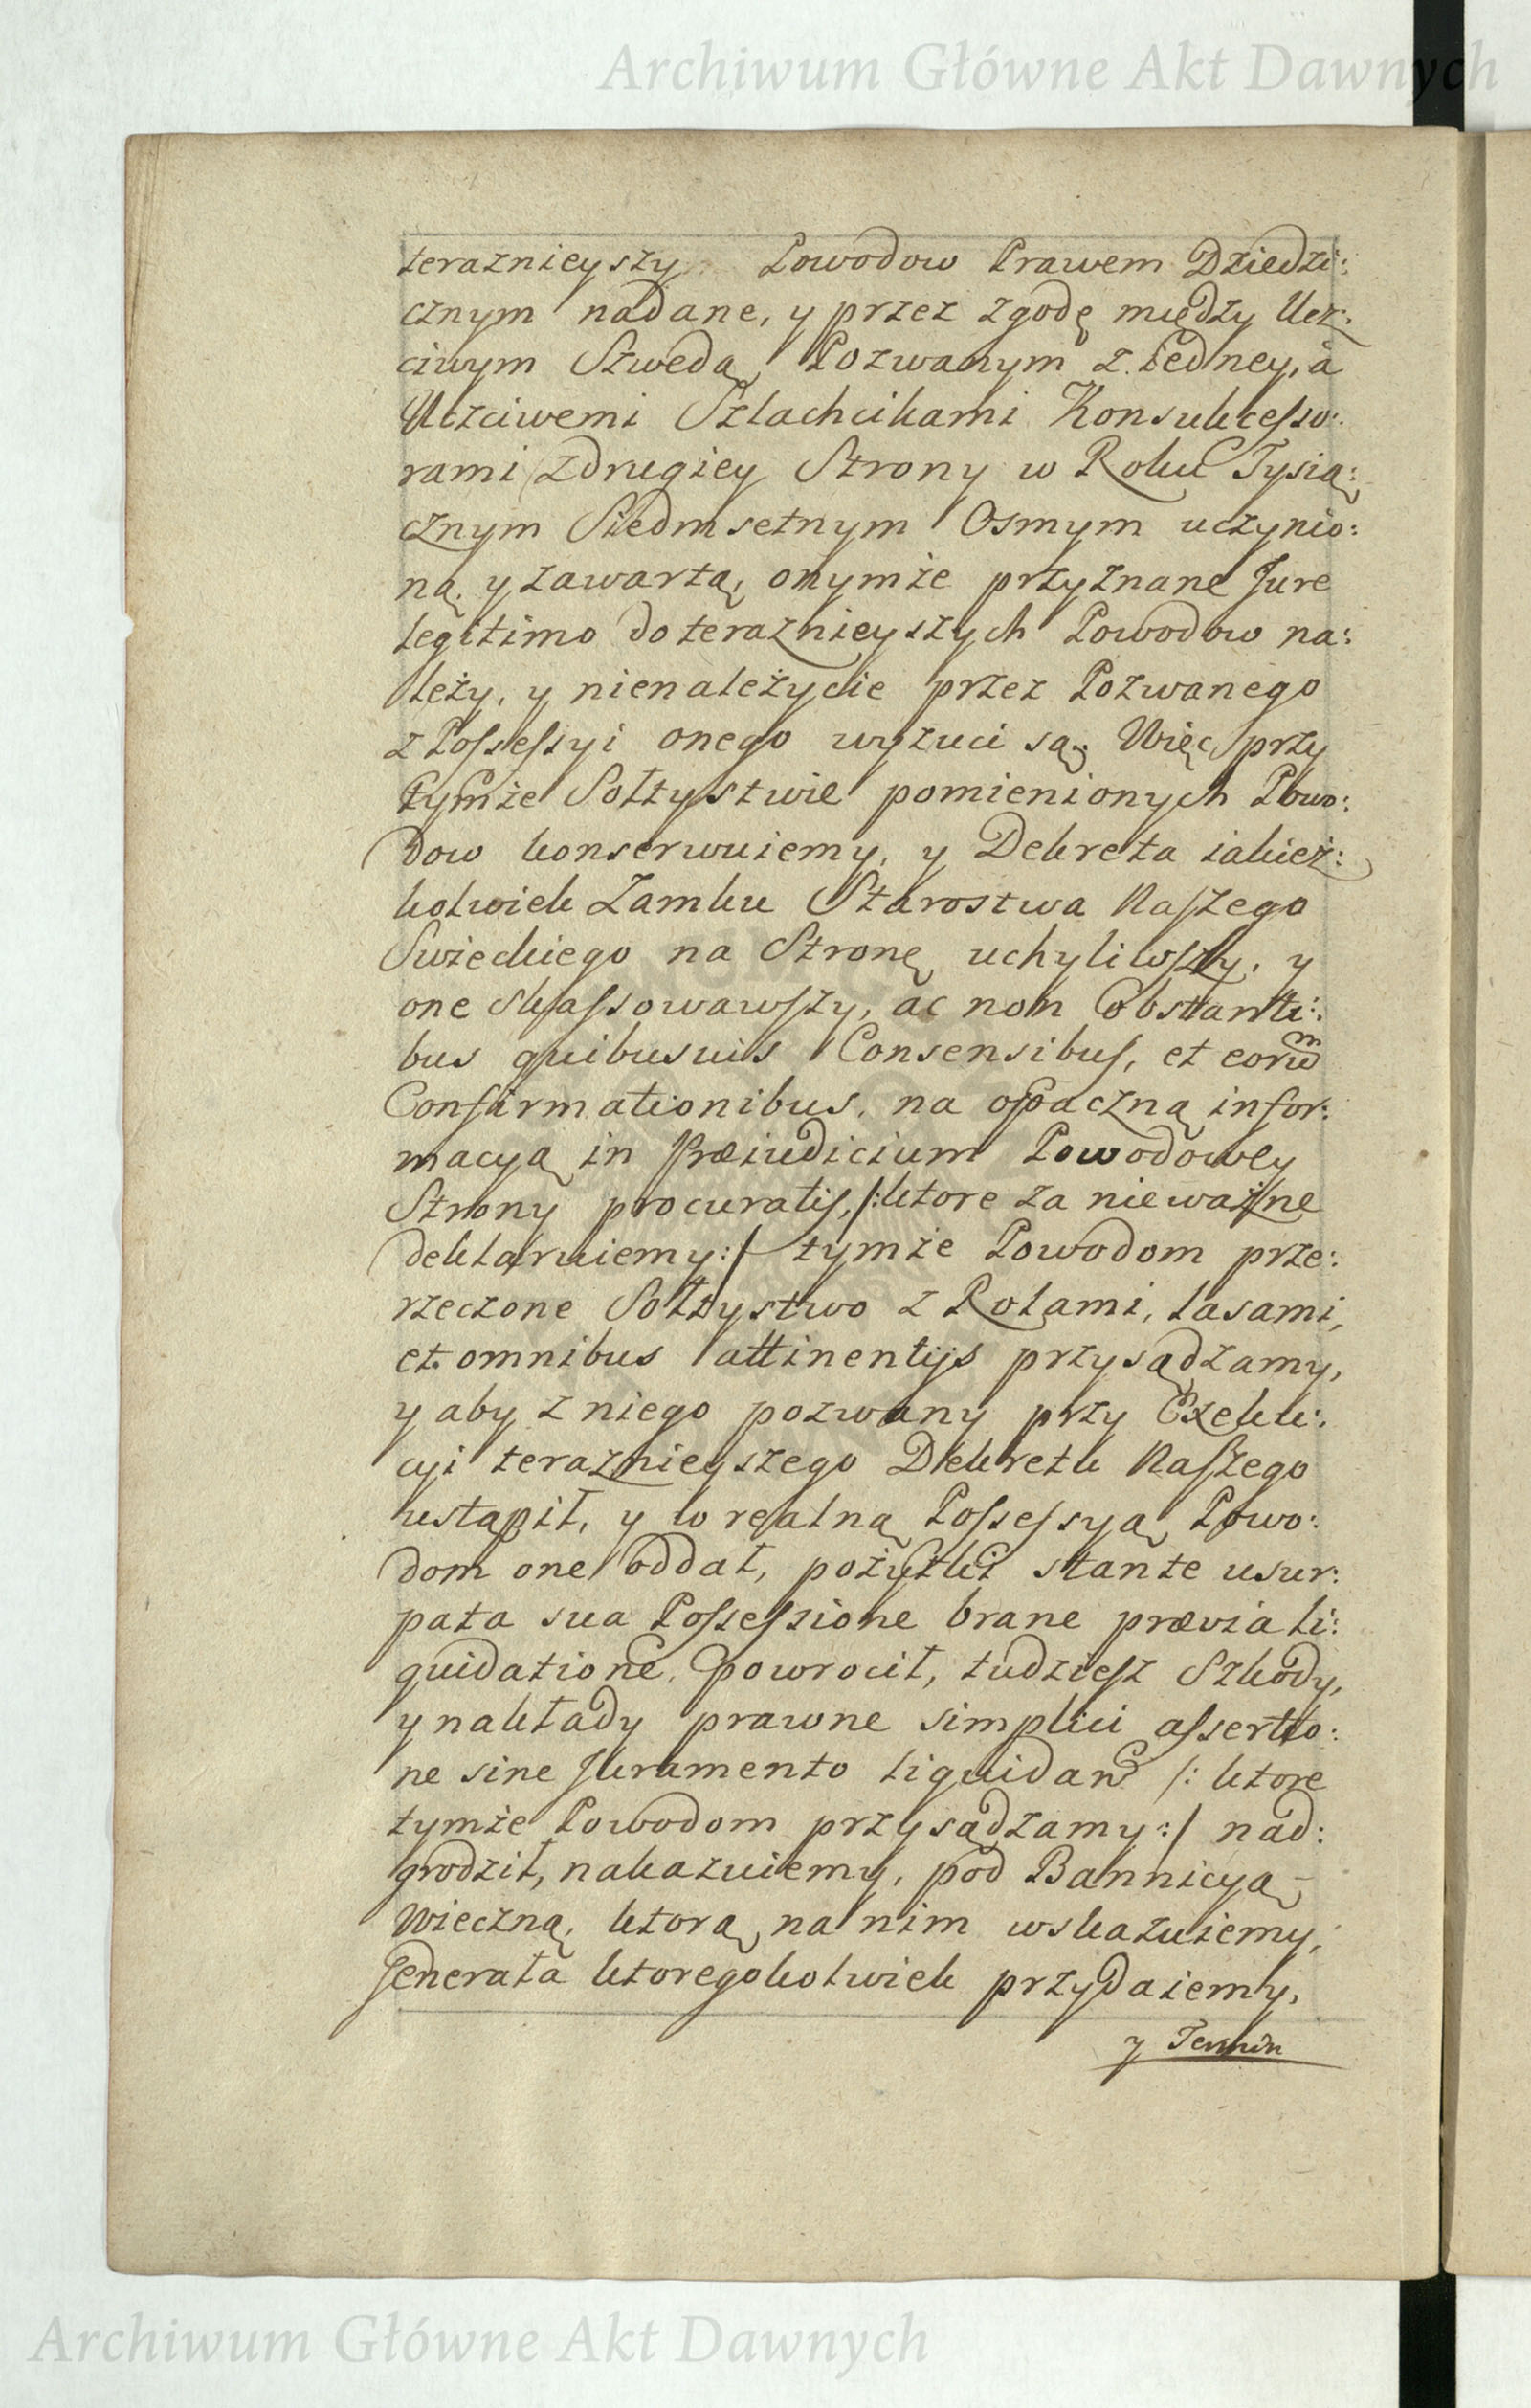 Archiwum Główne Akt Dawnych
teraznieyszy Powodow Prawem Dziedzi:
cznym nadane, y przez zgodę między Ucz:
ciwym Szwedą Pozwanym z iedney, a
Uczciwemi Szlachcikami Konsukcesso:
rami z drugiey Strony w Roku Tysią:
cznym Siedmsetnym Osmym uczynio:
ną, y zawartą, onymże przyznane Jure
legitimo do teraznieyszych Powodow na:
leży, y nienależycie przez Pozwanego
z Possessyi onego wyzuci są. Więc przy
tymże Sołtystwie pomienionych Powo:
dow konserwuiemy, y Dekreta iakież:
kolwiek Zamku Starostwa Naszego
Swieckiego na Stronę uchyliwszy, y
one skassowawszy, ac non Obstanti:
bus quibusuis Consensibus, et eorum
Confirmationibus, na opaczną infor:
macyą in Præiudicium Powodowey
Strony procuratis, /:ktore za nieważne
deklaruiemy:/ tymże Powodom prze:
rzeczone Sołtystwo z Rolami, lasami,
et omnibus attinentijs przysądzamy,
y aby z niego pozwany przy Exeku:
cyi teraznieyszego Dekretu Naszego
ustąpił, y w realną Possessyą Powo:
dom one oddał, pożytki stante usur:
pata sua Possessione brane prævia li:
quidatione, powrocił, tudziesz Szkody,
y nakłady prawne simplici assertio:
ne sine Juramento liquidan /: ktore
tymże Powodom przysądzamy:/ nad:
grodził, nakazuiemy, pod Bannicyą
Wieczną, ktorą na nim wskazuiemy,
Jenerała ktoregokolwiek przydaiemy,
y Termin
Archiwum Główne Akt Dawnych